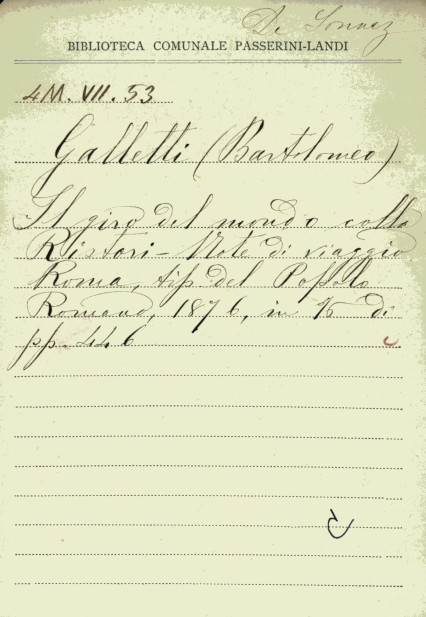 De Sonnaz
BIBLIOTECA COMUNALE PASSERINI-LANDI
4M. VII. 53
Galletti (Bartolomeo)
Il giro del mondo colla
Ristori - Note di viaggio
Roma, tip. del Popolo
Romano, 1876, in 16 di
pp. 446